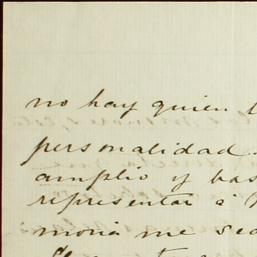 no hay quien
personalidad
amplio y bas
representar á
moria me sea